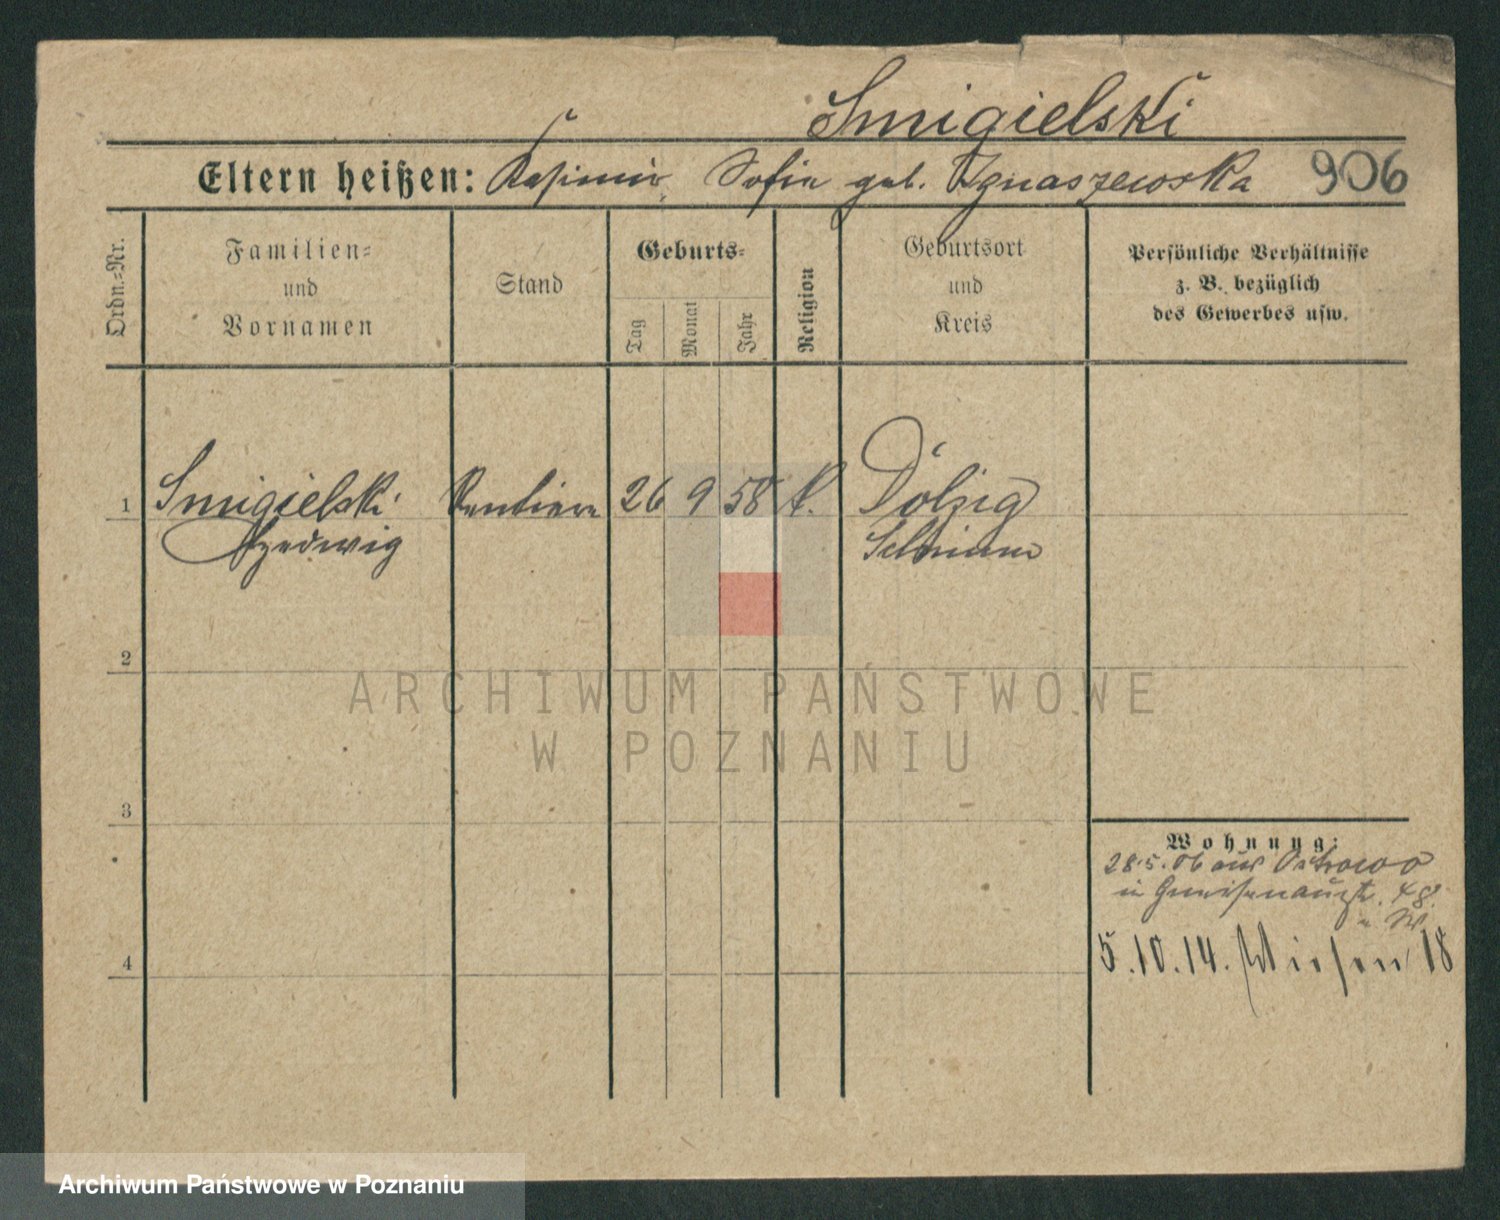 Smigielski
Eltern heißen: Kasimir, Sofie geb. Ignaszewska 906
Ordn.-Nr.
Familien-
und
Vornamen
Stand
Geburts-
Tag
Monat
Jahr
Religion
Geburtsort
und
Kreis
Persönliche Verhältnisse
z. B. bezüglich
des Gewerbes usw.
1 Smigielski Rentiere 26 9 58 k. Dolzig
Hedwig Schrimm
2
ARCHIWUM PAŃSTWOWE
W POZNANIU
3
Wohnung:
28.5.06 aus Ostrowo
in Gneisenaustr. 48.
5.10.14. Wiesen 18
4
Archiwum Państwowe w Poznaniu